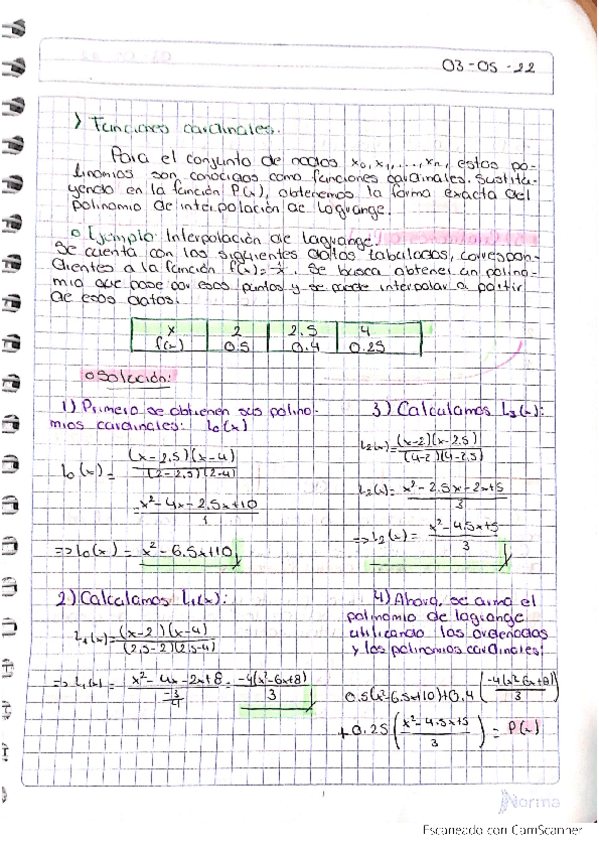 03-05-22
> Funciones cardinales.
Para el conjunto de nodos x₀, x₁, ..., xn, estos po-
linomios son conocidos como funciones cardinales. Sustitu-
yendo en la función P(x), obtenemos la forma exacta del
polinomio de interpolación de Lagrange.
o Ejemplo: Interpolación de Lagrange.
Se cuenta con los siguientes datos tabulados, correspon-
dientes a la función f(x)=1/x. Se busca obtener un polino-
mio que pase por esos puntos y se puede interpolar a partir
de esos datos.
x 2 2.5 4
f(x) 0.5 0.4 0.25
o Solución:
1) Primero se obtienen sus polino-
mios cardinales: L₀(x)
L₀(x) = (x-2.5)(x-4) / (2-2.5)(2-4)
= x²-4x-2.5x+10 / 1
=> L₀(x) = x²-6.5x+10
2) Calculamos L₁(x):
L₁(x) = (x-2)(x-4) / (2.5-2)(2.5-4)
=> L₁(x) = x²-4x-2x+8 / -3/4 = -4(x²-6x+8) / 3
3) Calculamos L₃(x):
L₂(x) = (x-2)(x-2.5) / (4-2)(4-2.5)
L₂(x) = x²-2.5x-2x+5 / 3
=> L₂(x) = x²-4.5x+5 / 3
4) Ahora, se arma el
polinomio de lagrange
utilizando las ordenadas
y los polinomios cardinales:
0.5(x²-6.5x+10)+0.4(-4(x²-6x+8) / 3)
+0.25(x²-4.5x+5 / 3) = P(x)
Norma
Escaneado con CamScanner